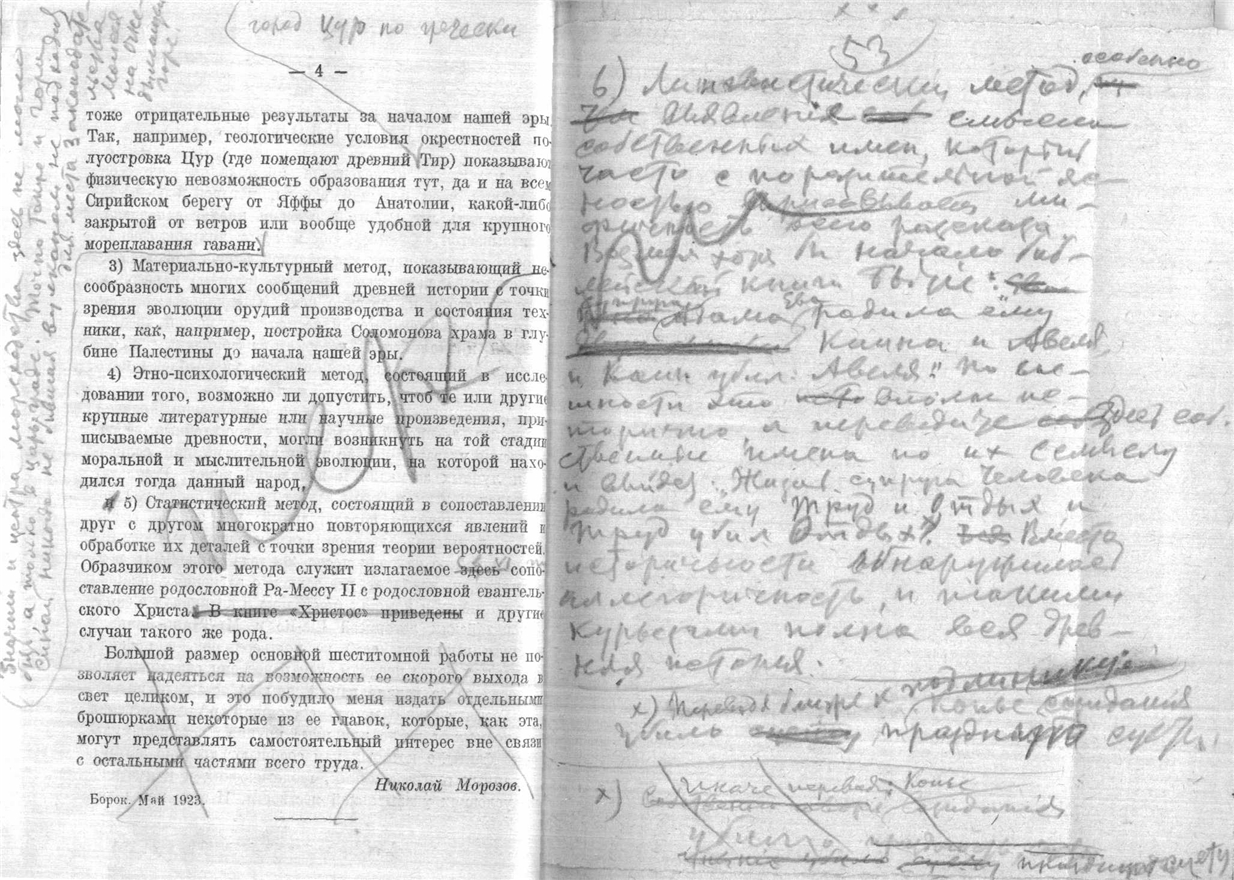 (город Цур по гречески
— 4 —
тоже отрицательные результаты за началом нашей эры
Так, например, геологические условия окрестностей по-
луостровка Цур (где помещают древний Тир) показываю
физическую невозможность образования тут, да и на всем
Сирийском берегу от Яффы до Анатолии, какой-либо
закрытой от ветров или вообще удобной для крупного
мореплавания гавани.
3) Материально-культурный метод, показывающий не-
сообразность многих сообщений древней истории с точки
зрения эволюции орудий производства и состояния тех-
ники, как, например, постройка Соломонова храма в глу-
бине Палестины до начала нашей эры.
4) Этно-психологический метод, состоящий в иссле-
довании того, возможно ли допустить, чтоб те или другие
крупные литературные или научные произведения, при-
писываемые древности, могли возникнуть на той стадии
моральной и мыслительной эволюции, на которой нахо-
дился тогда данный народ,
и 5) Статистический метод, состоящий в сопоставлении
друг с другом многократно повторяющихся явлений и
обработке их деталей с точки зрения теории вероятностей.
Образчиком этого метода служит излагаемое здесь сопо-
ставление родословной Ра-Мессу II с родословной евангель-
ского Христа. В книге «Христос» приведены и другие
случаи такого же рода.
Большой размер основной шеститомной работы не по-
зволяет надеяться на возможность ее скорого выхода в
свет целиком, и это побудило меня издать отдельными
брошюрками некоторые из ее главок, которые, как эта,
могут представлять самостоятельный интерес вне связи
с остальными частями всего труда.
Николай Морозов.
Борок. Май 1923.
53
особенно
6) Лингвистический метод,
выявления смысла
собственных имен, который
часто с поразительной яс-
ностью ми-
фичность всего рассказа.
Возьмем хотя бы начало биб-
лейской книги Бытие:
супруга Адама Ева родила ему
Каина и Авеля,
и Каин убил Авеля". По вне-
шности это вполне ис-
торично, а переведите здесь соб-
ственные имена по их смыслу
и выйдет: "Жизнь, супруга Человека
родила ему Труд и Отдых и
Труд убил Отдых" x). Вместо
историчности обнаруживает
аллегоричность, и такими
курьезами полна вся древ-
няя история.
x) Переводя ближе к подлиннику:
Копье созидания
убило праздную суету.
x) Иначе переводя: Копье
созидания
убило
праздную суету